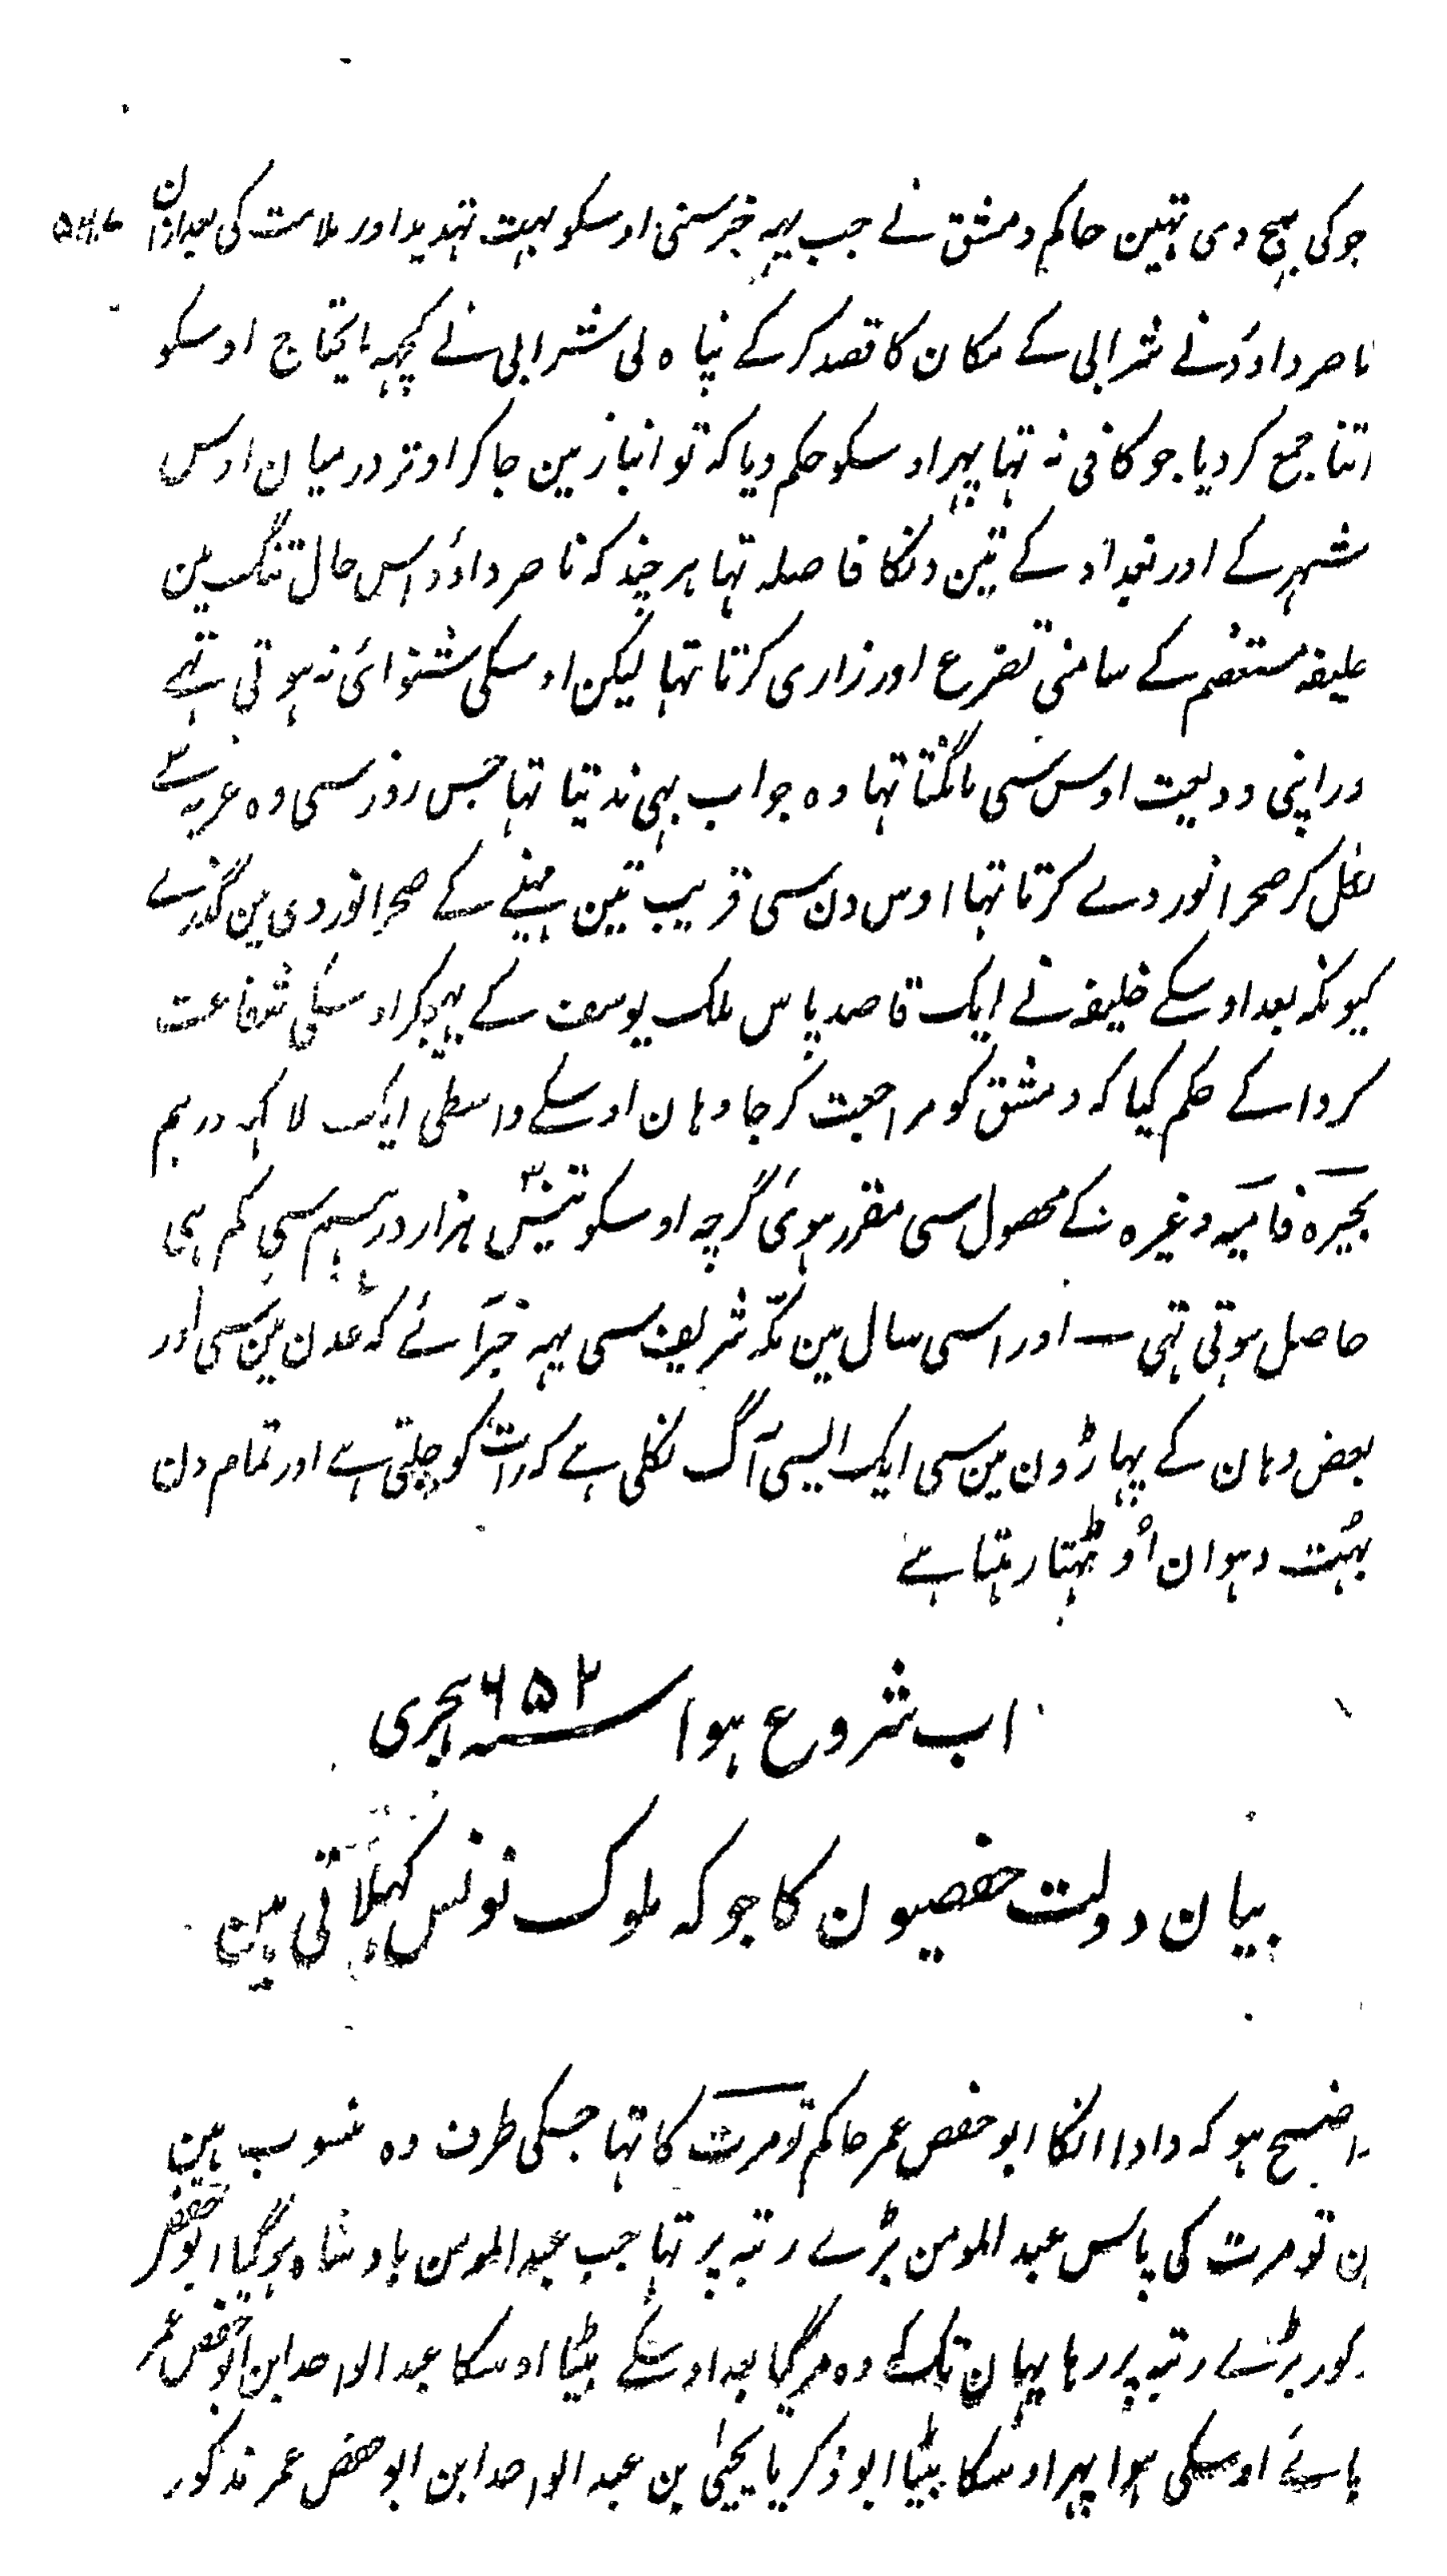 جو کی بھیج دی تہین حاکم دمشق نے جب یہہ خبر سنی اوسکو بہت تہدید اور ملامت کی بعد ازان
ناصر داودنے شرابی کے مکان کا قصد کر کے پناہ لی شرابی نے کچہہ مایحتاج اوسکو
اتنا جمع کر دیا جو کافی نہ تہا پہر اوسکو حکم دیا کہ تو انبار مین جا کر اوتر درمیان اوس
شہر کے اور بغداد کے تین دنکا فاصلہ تہا ہر چند کہ ناصر داود اس حال تنگ مین
خلیفہ مستعصم کے سامنی تضرع اور زاری کرتا تہا لیکن اوسکی شنوائی نہ ہوتی تہے
اور اپنی ودیعت اوس سی مانگتا تہا وہ جواب بہی ندیتا تہا جس روز سی وہ عربہ سے
نکل کر صحرا نوردے کرتا تہا اوس دن سی قریب تین مہینے کے صحرا نوردی مین گذرے
کیونکہ بعد اوسکے خلیفہ نے ایک قاصد پاس ملک یوسف کے بہیجکر اوسکی شفاعت
کروا کے حکم کیا کہ دمشق کو مراجعت کر جا وہان اوسکے واسطی ایک لاکہہ درہم
بحیرہ فامیہ وغیرہ کے محصول سی مقرر ہوئ گرچہ اوسکو تیس ہزار درہم سی کم ہی
حاصل ہوتی تہی — اور اسی سال مین مکہ شریف سی یہہ خبر آئے کہ عدن مین سی اور
بعض وہان کے پہاڑون مین سی ایک ایسی آگ نکلی ہے کہ رات کو چلتی ہے اور تمام دن
بہت دہوان اوٹہتا رہتا ہے
اب شروع ہوا سنہ ۶۵۲ ہجری
بیان دولت حفصیون کا جو کہ ملوک تونس کہلاتی ہین
واضح ہو کہ دادا انکا ابو حفص عمر حاکم تومرت کا تہا جسکی طرف وہ منسوب ہین
ابن تومرت کی پاس عبد المومن بڑے رتبہ پر تہا جب عبد المومن بادشاہ ہوگیا ابو حفص
مذکور بڑے رتبہ پر رہا یہان تک کے وہ مر گیا بعد اوسکے بیٹا اوسکا عبد الواحد ابن ابو حفص عمر
بجائے اوسکی ہوا پہر اوسکا بیٹا ابو ذکریا یحییٰ بن عبد الواحد ابن ابو حفص عمر مذکور